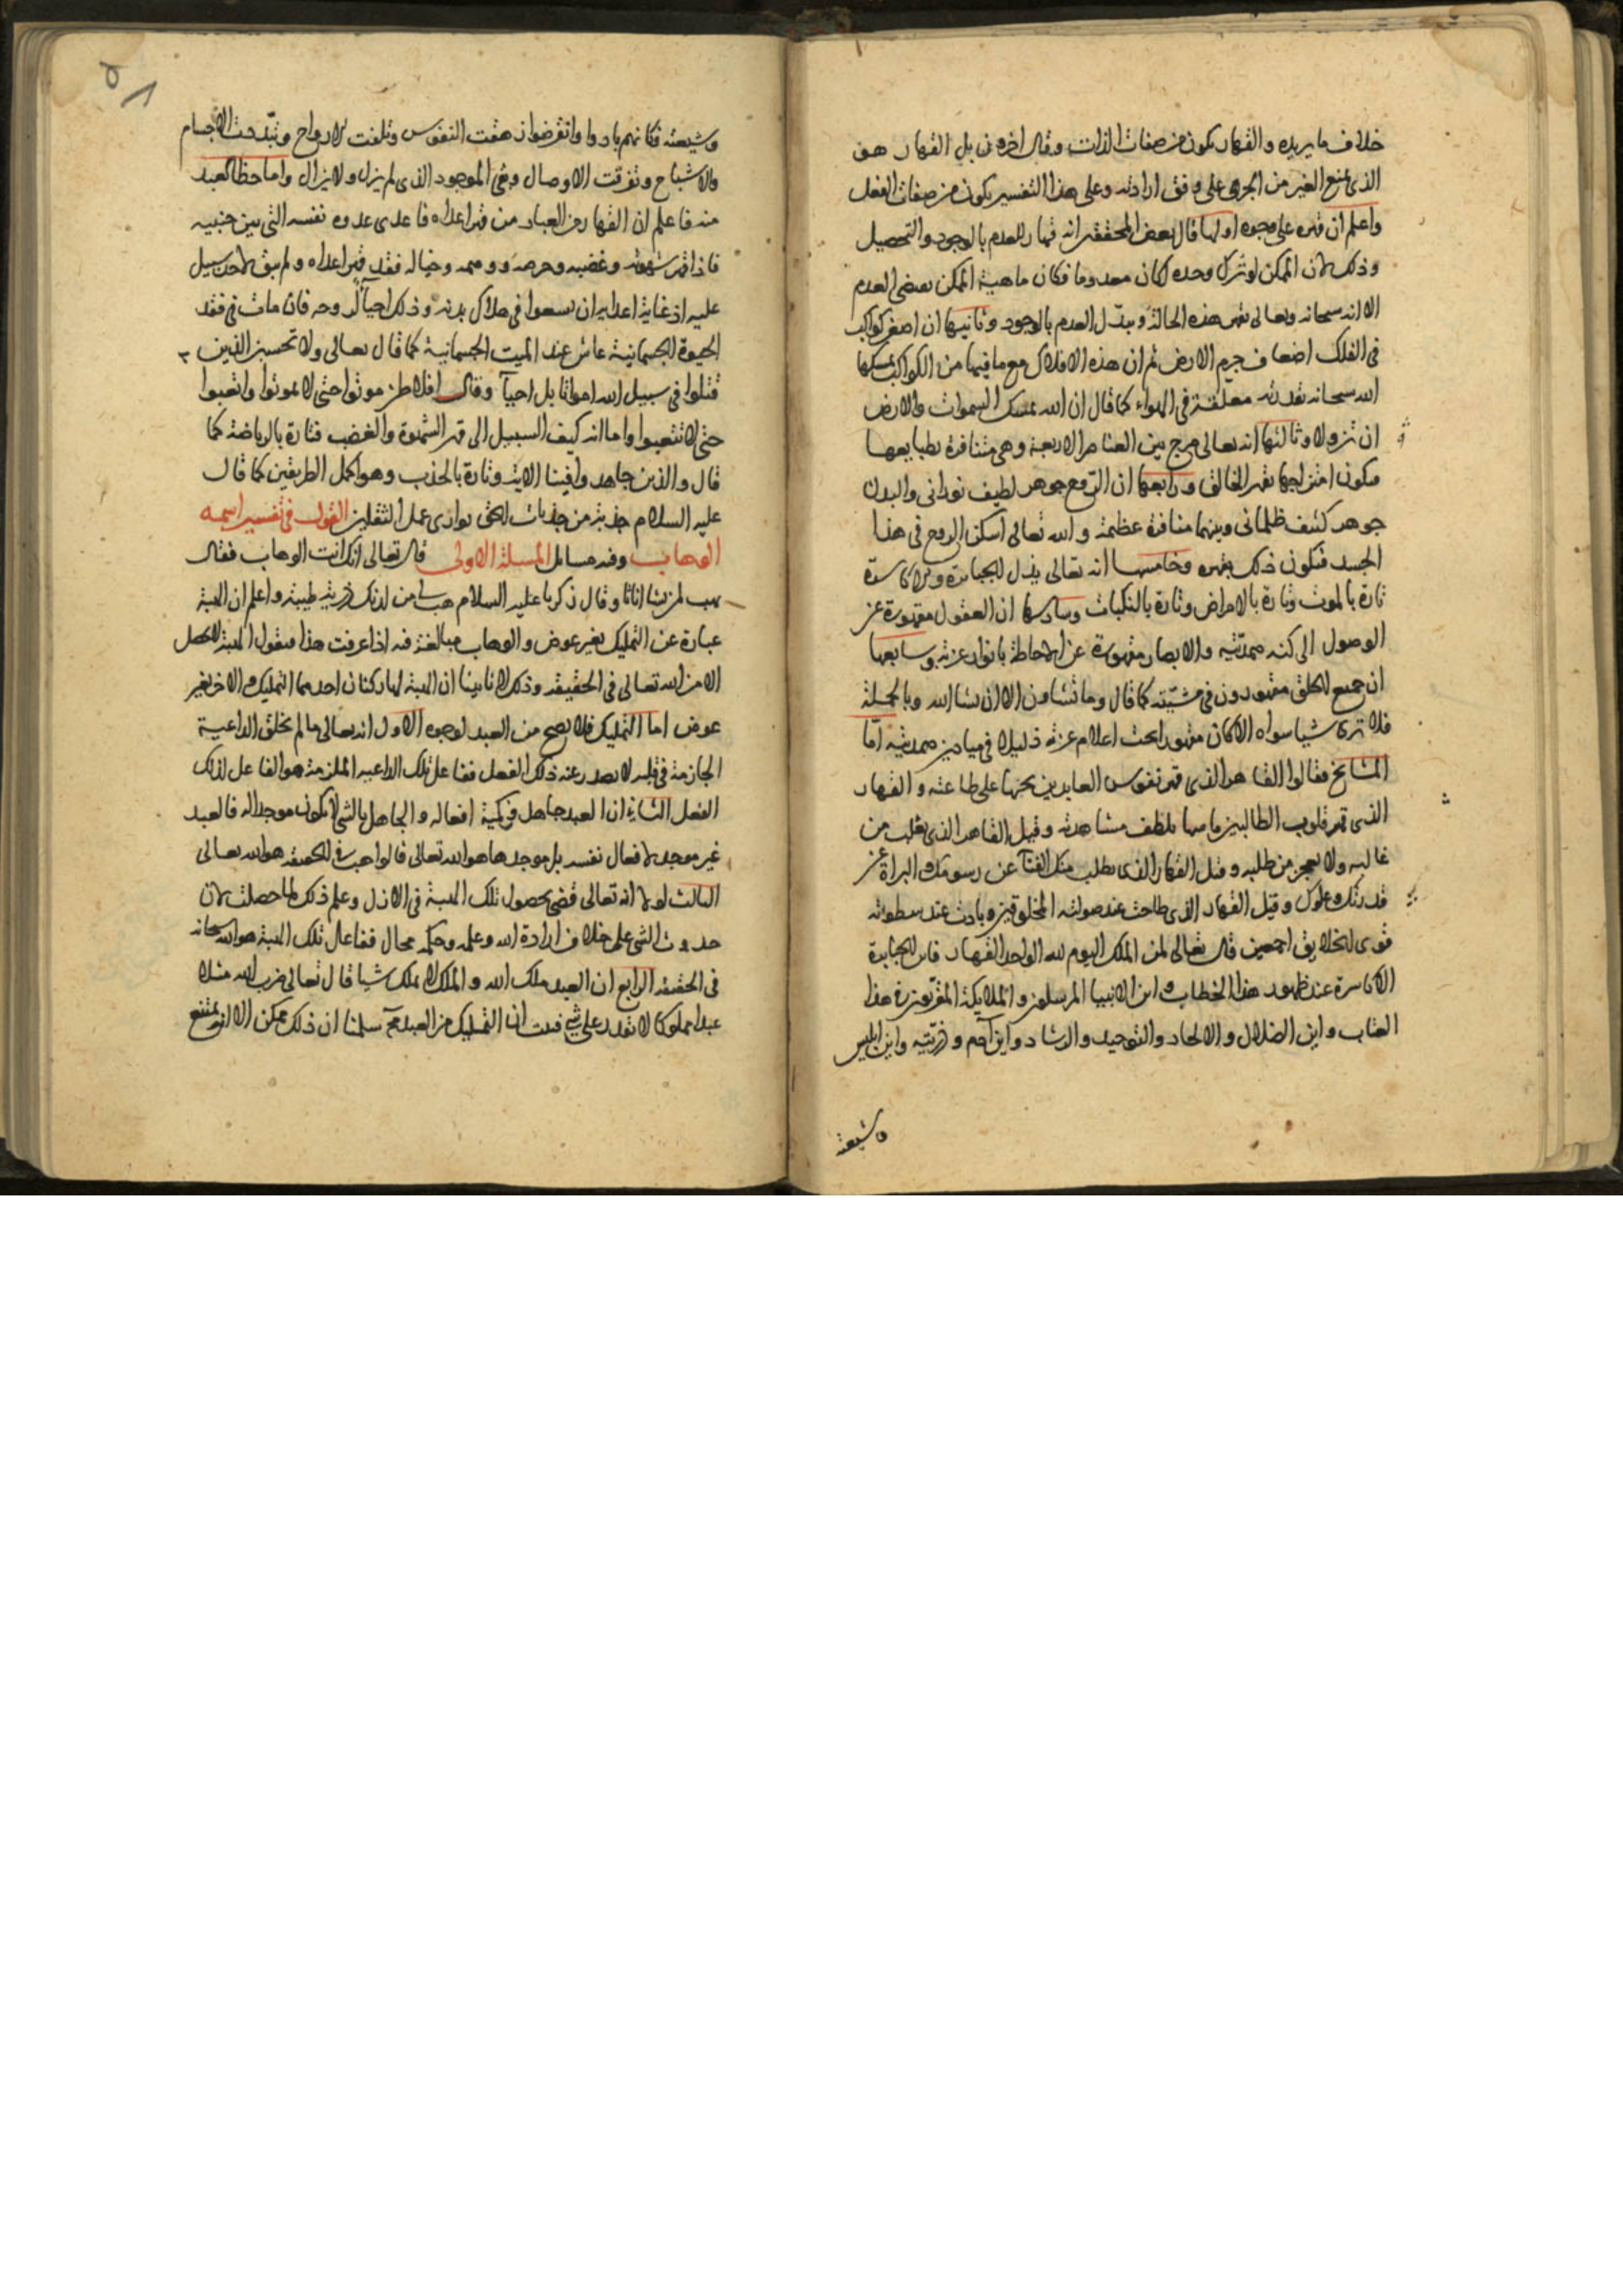 خلاف ما يريده والقهار يكون من صفات الذات وقال اخرون بل القهار هو
الذى يمنع الغير من الجرى على وفق ارادته وعلى هذا التفسير يكون من صفات الفعل
واعلم ان قهره على وجوه اولها قال بعض المحققين انه قهار للعدم بالوجود والتحصيل
وذلك لان الممكن لو ترك وحده لكان معدوما فكان ماهية الممكن يقتضى العدم
الا انه سبحانه وتعالى يقهر هذه الحالة ويبدل العدم بالوجود وثانيها ان اصغر كواكب
فى الفلك اضعاف جرم الارض ثم ان هذه الافلاك مع ما فيها من الكواكب يمسكها
الله سبحانه بقدرته معلقة فى الهواء كما قال ان الله يمسك السموات والارض
ان تزولا وثالثها انه تعالى مزج بين العناصر الاربعة وهى متنافرة بطبايعها
فيكون امتزاجها بقهر الخالق ورابعها ان الروح جوهر لطيف نورانى والبدن
جوهر كثيف ظلمانى وبينهما منافرة عظيمة والله تعالى اسكن الروح فى هذا
الجسد فيكون ذلك بقهره وخامسها انه تعالى يذل الجبابرة والاكاسرة
تارة بالموت وتارة بالامراض وتارة بالنكبات وسادسها ان العقول مقهورة عن
الوصول الى كنه صمديته والابصار مقهورة عن الاحاطة بانوار عزته وسابعها
ان جميع الخلق مقهورون فى مشيته كما قال وما تشاون الا ان يشا الله وبالجملة
فلا ترى شيا سواه الا كان مقهورا تحت اعلام عزته ذليلا فى ميادين صمديته اما
المشايخ فقالوا القاهر الذى قهر نفوس العابدين بحبها على طاعته والقهار
الذى قهر قلوب الطالبين بلطف مشاهدته وقيل القاهر الذى يغلب من
غالبه ولا يعجز من طلبه وقيل القهار الذى يطلب منك الفنآ عن رسومك والبراة عن
قدرتك وعلوك وقيل القهار الذى طاحت عند صولته المخلوقين وبادت عند سطوته
قوى الخلايق اجمعين قال تعالى لمن الملك اليوم لله الواحد القهار فاين الجبابرة
الاكاسرة عند ظهور هذا الخطاب واين الانبيا المرسلون والملايكة المقربون فى هذا
العتاب واين الضلال والالحاد والتوحيد والرشاد واين آدم وذريته واين ابليس
وشيعته
وشيعته فكانهم بادوا وانقرضوا زهقت النفوس وتلفت الارواح وتبددت الاجسام
والاشباح وتفرقت الاوصال وبقى الموجود الذى لم يزل ولا يزال واما حظ العبد
منه فاعلم ان القهار من العباد من قهر اعداه فاعدى عدوه نفسه التى بين جنبيه
فاذا قهر شهوته وغضبه وحرصه ووهمه وخياله فقد قهر اعداه ولم يبق لاحد سبيل
عليه اذ غاية اعدايه ان يسعوا فى هلاك بدنه وذلك احيآ لروحه فان مات فى فقد
الحيوة الجسمانية عاش عند الميت الجسمانية كما قال تعالى ولا تحسبن الذين
قتلوا فى سبيل الله امواتا بل احيآ وقال افلاطن موتوا حتى لا تموتوا واتعبوا
حتى لا تتعبوا واما انه كيف السبيل الى قهر الشهوة والغضب فتارة بالرياضة كما
قال والذين جاهدوا فينا الاية وتارة بالجذب وهو اكمل الطريقين كما قال
عليه السلام جذبة من جذبات الحق توازى عمل الثقلين القول فى تفسير اسمه
الوهاب وفيه مسايل المسلة الاولى قال تعالى انك انت الوهاب فقال
يهب لمن يشا اناثا وقال زكريا عليه السلام هب لى من لدنك ذرية طيبة واعلم ان الهبة
عبارة عن التمليك بغير عوض والوهاب مبالغة فيه اذا عرفت هذا فنقول الهبة لا تحصل
الا من الله تعالى فى الحقيقة وذلك لانا بينا ان الهبة لها ركنان احدهما التمليك والاخر بغير
عوض اما التمليك فلا يصح من العبد لوجوه الاول انه تعالى ما لم يخلق الداعية
الجازمة فى قلبه لا يصدر عنه ذلك الفعل ففاعل تلك الداعية الملزمة هو الفاعل لذلك
الفعل الثانى ان العبد جاهل فى كمية افعاله والجاهل بالشى لا يكون موجدا له فالعبد
غير موجد لافعال نفسه بل موجدها هو الله تعالى فالواهب فى الحقيقة هو الله تعالى
الثالث لولا انه تعالى قضى بحصول تلك الهبة فى الازل وعلم ذلك لما حصلت لان
حدوث الشى على خلاف ارادة الله وعلمه وحكمه محال ففاعل تلك الهبة هو الله سبحانه
فى الحقيقة الرابع ان العبد ملك الله والملك لا يملك شيا قال تعالى ضرب الله مثلا
عبدا مملوكا لا يقدر على شى فثبت ان التمليك من العبد مح سلمنا ان ذلك ممكن الا انه يمتنع